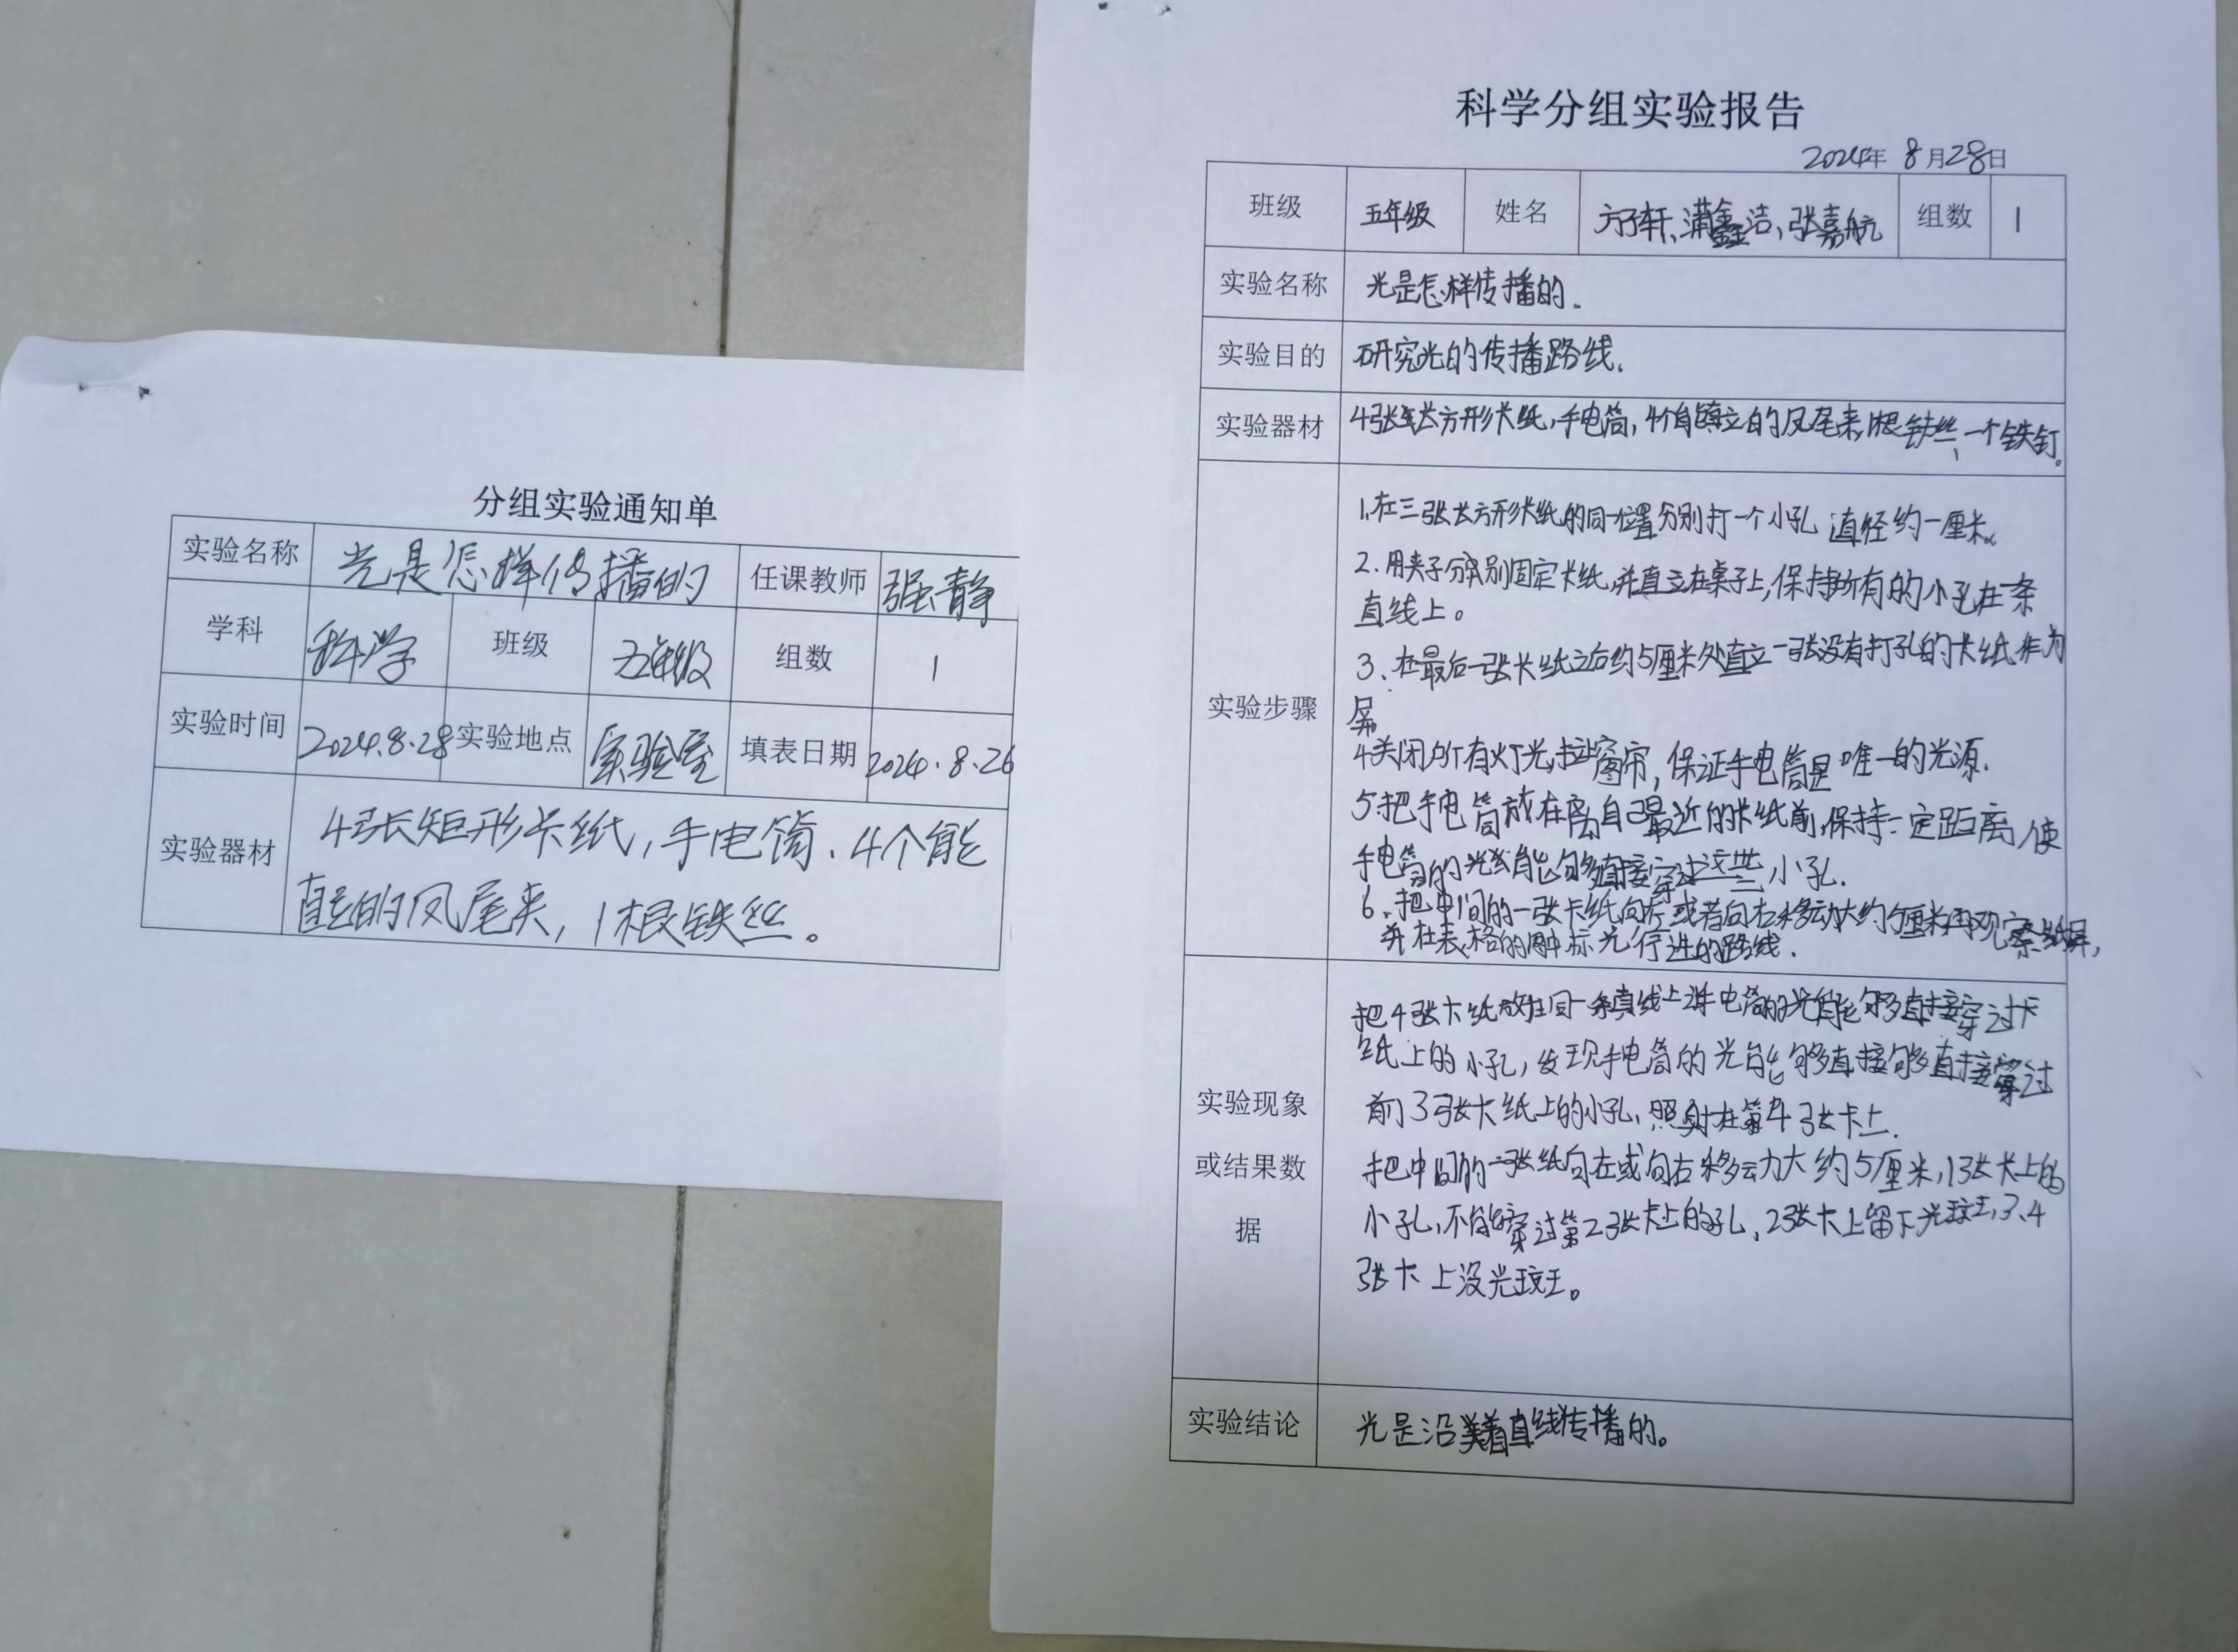 分组实验通知单
实验名称 光是怎样传播的 任课教师 强静
学科 科学 班级 五年级 组数 1
实验时间 2024.8.28 实验地点 实验室 填表日期 2024.8.26
实验器材 4张矩形卡纸,手电筒、4个能
直立的凤尾夹,1根铁丝。
科学分组实验报告
2024年 8月28日
班级 五年级 姓名 方子轩、蒲鑫洁、张嘉航 组数 1
实验名称 光是怎样传播的.
实验目的 研究光的传播路线.
实验器材 4张长方形卡纸,手电筒,4个直立的凤尾夹,1根铁丝、一个铁钉。
实验步骤
1.在三张长方形卡纸的同一位置分别打一个小孔 直径约一厘米。
2.用夹子分别固定卡纸,并直立在桌子上,保持所有的小孔在一条
直线上。
3、在最后一张卡纸之后约5厘米处直立一张没有打孔的卡纸作为
屏。
4关闭所有灯光,拉窗帘,保证手电筒是唯一的光源.
5把手电筒放在离自己最近的卡纸前,保持一定距离,使
手电筒的光线能够直接穿过这些小孔.
6、把中间的一张卡纸向左或者向右移动大约5厘米再观察纸屏,
并在表格的图中标光行进的路线.
实验现象
或结果数
据
把4张卡纸放在同一条直线上,手电筒的光能够直接穿过卡
纸上的小孔,发现手电筒的光能够直接够直接穿过
前3张卡纸上的小孔,照射在第4张卡上.
把中间的一张纸向左或向右移动大约5厘米,1张卡上的
小孔,不能穿过第2张卡上的孔,2张卡上留下光斑,3、4
张卡上没光斑。
实验结论 光是沿着直线传播的。